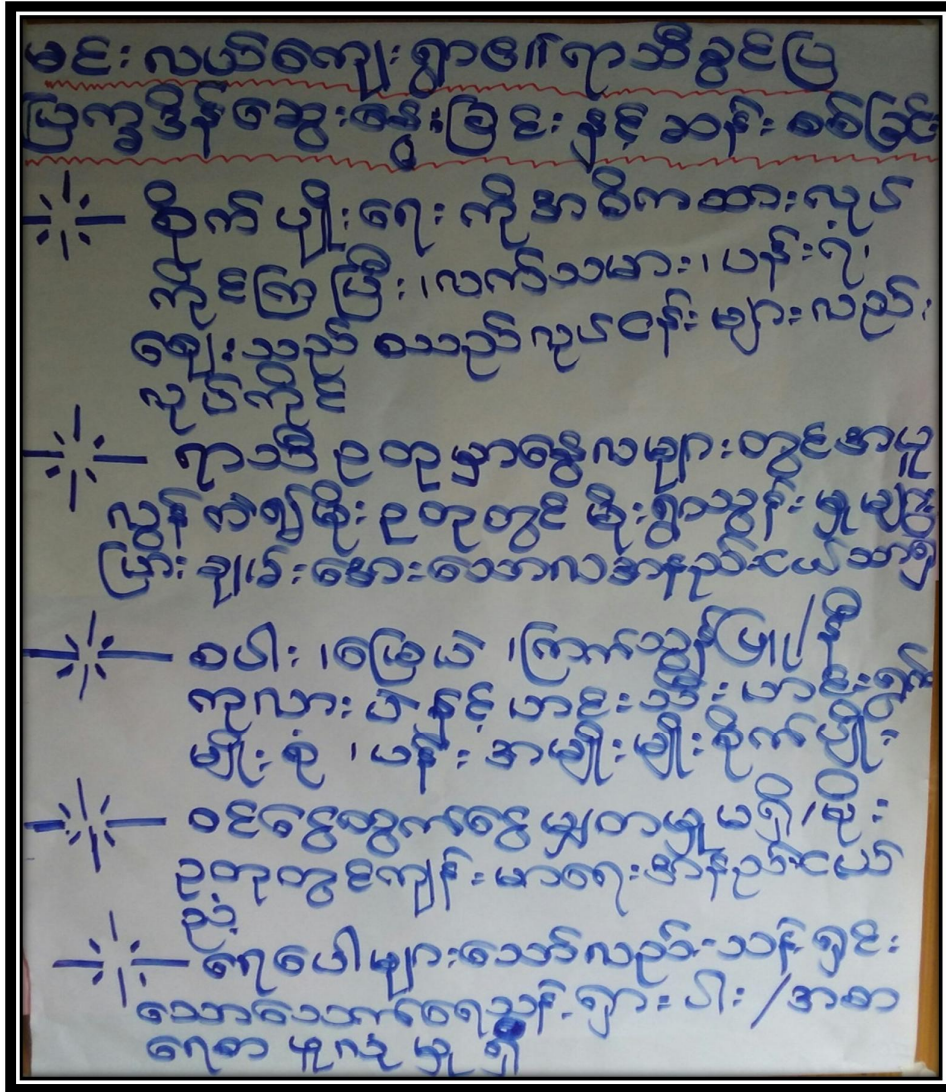 မင်းလယ်ကျေးရွာ၏ ရာသီခွင်ပြ
ပြက္ခဒိန်ဆွေးနွေးခြင်း နှင့် ဆန်းစစ်ခြင်း
စိုက်ပျိုးရေး ကိုအဓိကထားလုပ်
ကိုင်ကြပြီး၊ လက်သမား၊ ပန်းရံ၊
ဈေးသည် စသည့်လုပ်ငန်းများလည်း
လုပ်ကိုင်
ရာသီဥတုမှာနွေလများတွင်အပူ
လွန်ကဲ၍မိုးဥတုတွင် မိုးရွာသွန်းမှုများ
ပြား ချမ်းအေးသောလအနည်းငယ်သာရှိ
စပါး၊ မြေပဲ၊ ကြက်သွန်ဖြူ/နီ
ကုလားပဲ နှင့် ဟင်းသီးဟင်းရွက်
မျိုးစုံ၊ ပန်းအမျိုးမျိုးစိုက်ပျိုး
ဝင်ငွေထွက်ငွေမျှတမှုမရှိ/မိုး
ဥတုတွင်ကျန်းမာရေးအနည်းငယ်
ညံ့
ရေပေါများသော်လည်း သန့်ရှင်း
သောသောက်ရေသန့်ရှားပါး/အစာ
ရေစာ ရှိ